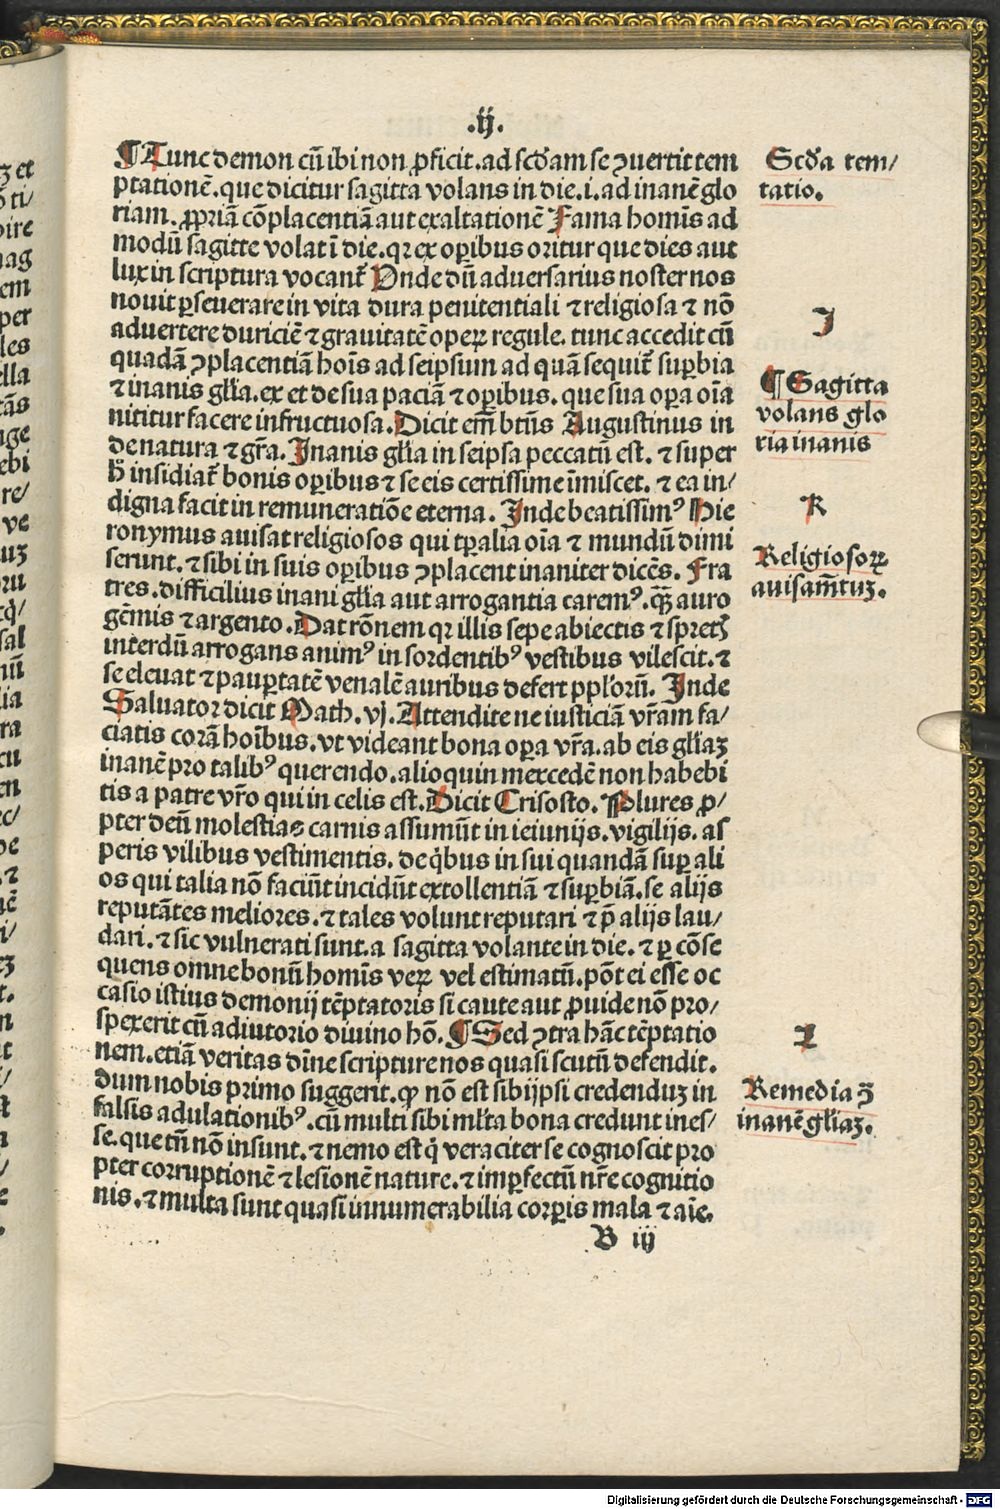 .ij.
¶Tunc demon cū ibi non ꝓficit. ad scdam se ꝯuertit tem
ptationē. que dicitur sagitta volans in die. i. ad inanē glo
riam. ꝓpriā cōplacentiā aut exaltationē Fama homīs ad
modū sagitte volat ī die. qꝛ ex oꝑibus oritur que dies aut
lux in scriptura vocant̄ Vnde dū adversarius noster nos
novit ꝑseverare in vita dura penitentiali ⁊ religiosa ⁊ nō
advertere duriciē ⁊ gravitatē opeꝝ regule. tunc accedit cū
quadā ꝯplacentiā hoīs ad seipsum ad quā sequit̄ suꝑbia
⁊ inanis gl̄ia. ex et de sua paciā ⁊ oꝑibus. que sua oꝑa oīa
nititur facere infructuosa. Dicit em̄ btūs Augustinus in
de natura ⁊ gr̄a. Inanis gl̄ia in seipsa peccatū est. ⁊ super
h̄ insidiat̄ bonis oꝑibus ⁊ se eis certissime īmiscet. ⁊ ea in/
digna facit in remuneratiōe eterna. Inde beatissimꝰ Hie
ronymus avisat religiosos qui tꝑalia oīa ⁊ mundū dimi
serunt. ⁊ sibi in suis oꝑibus ꝯplacent inaniter dicēs. Fra
tres. difficilius inani gl̄ia aut arrogantia caremꝰ. qꝫ̄ auro
gēmis ⁊ argento. Dat rōnem qꝛ illis sepe abiectis ⁊ spretꝭ
interdū arrogans animꝰ in sordentibꝰ vestibus vilescit. ⁊
se elevat ⁊ pauꝑtatē venalē auribus defert ppl'orū. Inde
Salvator dicit Math. vj. Attendite ne iusticiā vr̄am fa/
ciatis corā hoībus. vt videant bona oꝑa vr̄a. ab eis gl̄iaꝫ
inanē pro talibꝰ querendo. alioquin mercedē non habebi
tis a patre vr̄o qui in celis est. Dicit Crisosto. Plures ꝓ/
pter deū molestias carnis assumūt in ieiunijs. vigilijs. as
peris vilibus vestimentis. de q̇bus in sui quandā suꝑ ali
os qui talia nō faciūt incidūt extollentiā ⁊ suꝑbiā. se alijs
reputātes meliores. ⁊ tales volunt reputari ⁊ p̄ alijs lau/
dari. ⁊ sic vulnerati sunt. a sagitta volante in die. ⁊ ꝑ cōse
quens omne bonū homīs veꝝ vel estimatū. pōt ei esse oc
casio istius demonij tēptatoris si caute aut ꝓuide nō pro/
spexerit cū adiutorio divino hō. ¶Sed ꝯtra hāc tēptatio
nem. etiā veritas dīne scripture nos quasi scutū defendit.
dum nobis primo suggerit. ꝙ nō est sibijpsi credenduꝫ in
falsis adulationibꝰ. cū multi sibi ml̄ta bona credunt ines/
se. que tn̄ nō insunt. ⁊ nemo est q̇ veraciter se cognoscit pro
pter corruptionē ⁊ lesionē nature. ⁊ imꝑfectū nr̄e cognitio
nis. ⁊ multa sunt quasi innumerabilia corꝑis mala ⁊ aīe.
B iij
Scda tem/
tatio.
I
¶Sagitta
volans glo
ria inanis
K
Religiosoꝝ
avisam̄tuꝫ.
L
Remedia ꝯ̄
inanē gl̄iaꝫ.
Digitalisierung gefördert durch die Deutsche Forschungsgemeinschaft - DFG